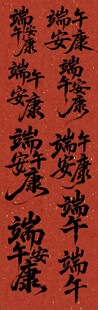 端午安康
端午安康
端午安康
端午安康
端午安康
端午安康
端午安康
端午
端午